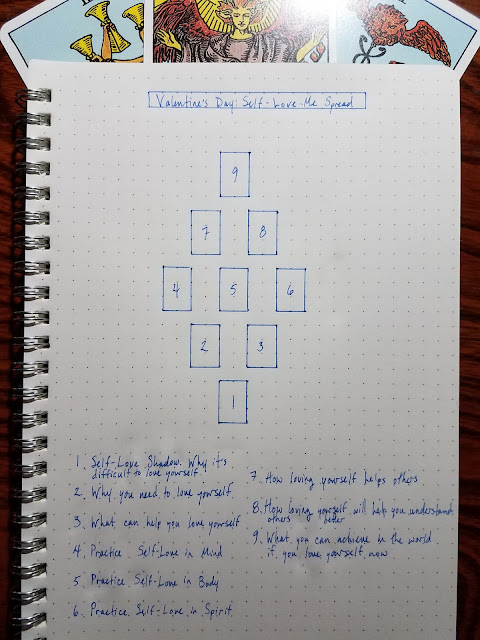 Valentine's Day: Self-Love Me Spread
9
7 8
4 5 6
2 3
1
1. Self-Love Shadow. Why it's
difficult to love yourself
2. Why you need to love yourself
3. What can help you love yourself
4. Practice Self-Love in Mind
5. Practice Self-Love in Body
6. Practice Self-Love in Spirit
7. How loving yourself helps others
8. How loving yourself will help you understand
others better
9. What you can achieve in the world
if you love yourself now